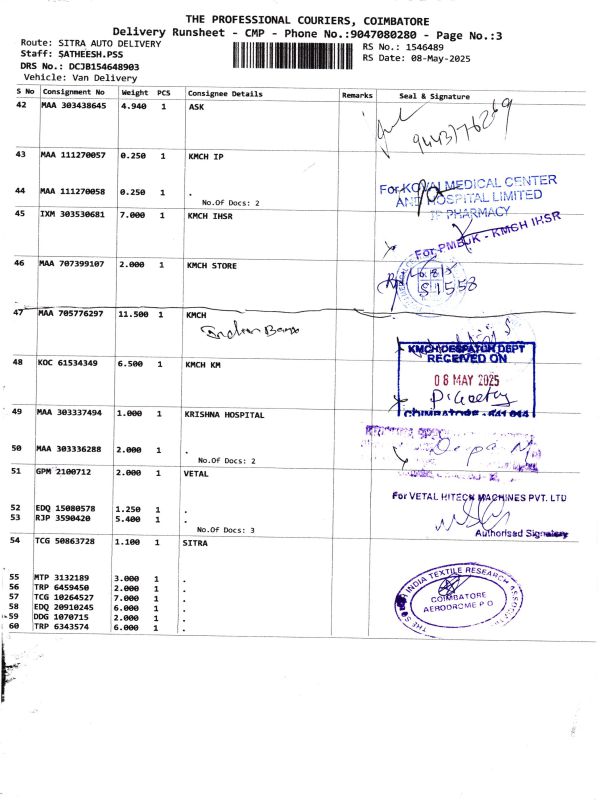 THE PROFESSIONAL COURIERS, COIMBATORE
Delivery Runsheet - CMP - Phone No.:9047080280 - Page No.:3
Route: SITRA AUTO DELIVERY
Staff: SATHEESH.PSS
DRS No.: DCJB154648903
Vehicle: Van Delivery
RS No.: 1546489
RS Date: 08-May-2025
S No Consignment No Weight PCS Consignee Details Remarks Seal & Signature
42 MAA 303438645 4.940 1 ASK
9443776269
43 MAA 111270057 0.250 1 KMCH IP
44 MAA 111270058 0.250 1 .
No.Of Docs: 2
For KOVAI MEDICAL CENTER
AND HOSPITAL LIMITED
IP PHARMACY
45 IXM 303530681 7.000 1 KMCH IHSR
For PMBJK - KMCH IHSR
46 MAA 707399107 2.000 1 KMCH STORE
S1558
47 MAA 705776297 11.500 1 KMCH
KMCH DESPATCH DEPT
RECEIVED ON
08 MAY 2025
COIMBATORE - 641 014
48 KOC 61534349 6.500 1 KMCH KM
49 MAA 303337494 1.000 1 KRISHNA HOSPITAL
50 MAA 303336288 2.000 1 .
No.Of Docs: 2
Depa N
51 GPM 2100712 2.000 1 VETAL
52 EDQ 15080578 1.250 1 .
53 RJP 3590420 5.400 1 .
No.Of Docs: 3
For VETAL HITECH MACHINES PVT. LTD
Authorised Signatory
54 TCG 50863728 1.100 1 SITRA
55 MTP 3132189 3.000 1 .
56 TRP 6459450 2.000 1 .
57 TCG 10264527 7.000 1 .
58 EDQ 20910245 6.000 1 .
59 DDG 1070715 2.000 1 .
60 TRP 6343574 6.000 1 .
THE SOUTH INDIA TEXTILE RESEARCH ASSOCIATION
COIMBATORE
AERODROME P O